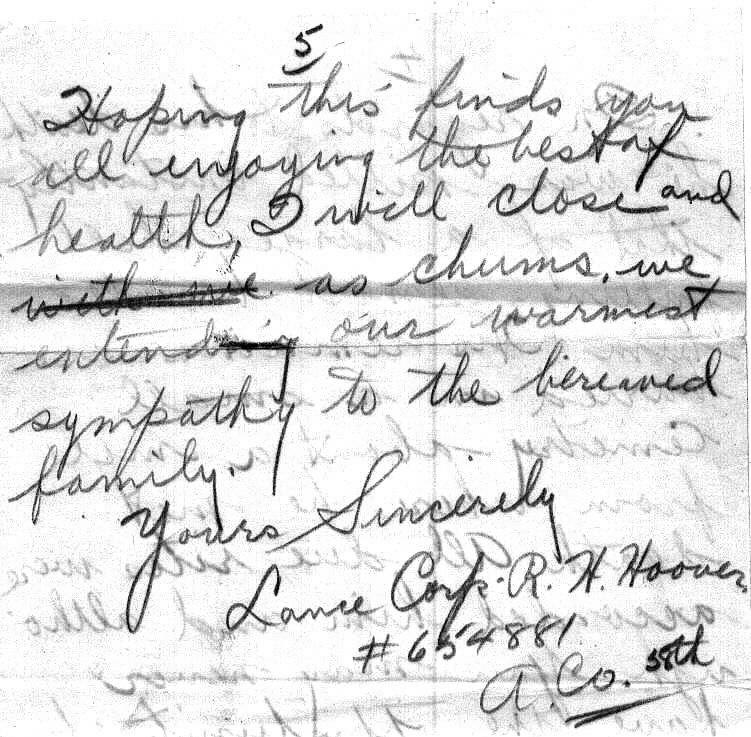 5
Hoping this finds you
all enjoying the best of
health, I will close and
with we as chums, we
extend our warmest
sympathy to the bereaved
family.
Yours Sincerely
Lance Corp. R. H. Hoover
#654881
A. Co. 58th